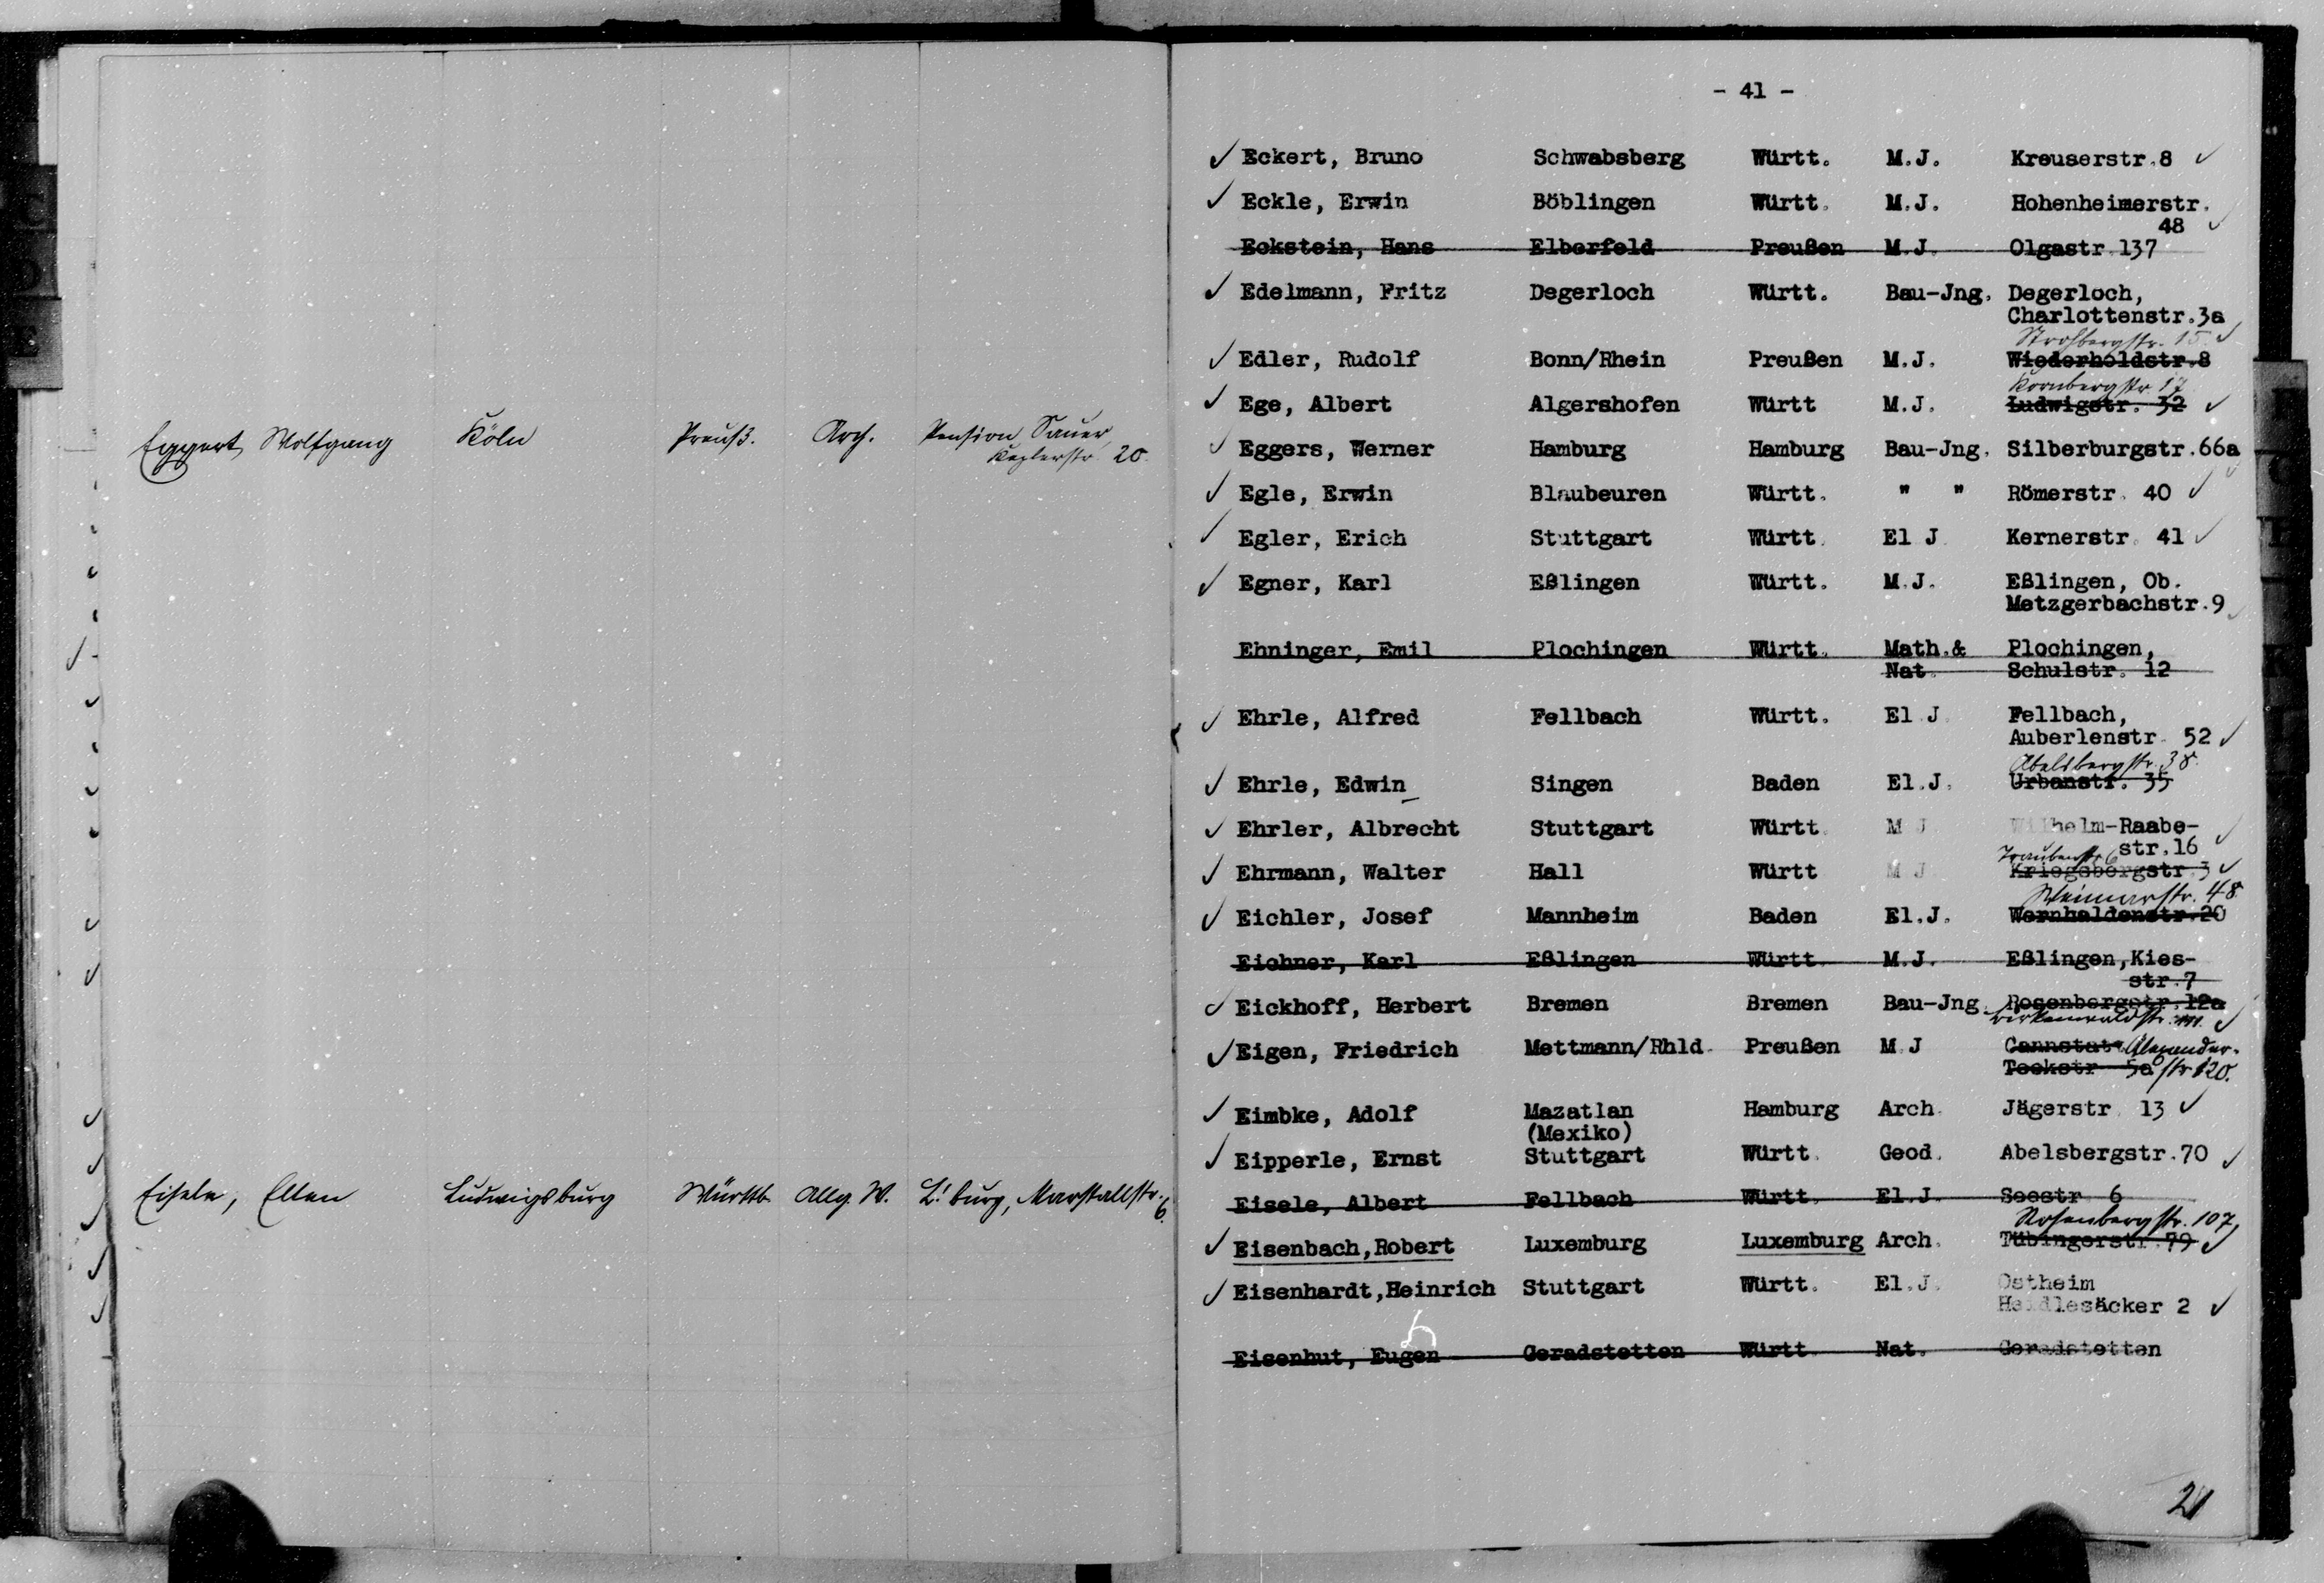 Eggert, Wolfgang Köln Preuß. Arch. Pension Sauer,
Keplerstr. 20.
Eisele, Ellen Ludwigsburg Württb. Allg. W. L'burg, Marstallstr.
6.
- 41 -
Eckert, Bruno Schwabsberg Württ. M.J. Kreuserstr.8
Eckle, Erwin Böblingen Württ. M.J. Hohenheimerstr.
48
Eckstein, Hans Elberfeld Preußen M.J. Olgastr.137
Edelmann, Fritz Degerloch Württ. Bau-Jng. Degerloch,
Charlottenstr.3a
Strohbergstr. 15.
Edler, Rudolf Bonn/Rhein Preußen M.J. Wiederholdstr.8
Kornbergstr 17
Ege, Albert Algershofen Württ M.J. Ludwigstr. 32
Eggers, Werner Hamburg Hamburg Bau-Jng. Silberburgstr.66a
Egle, Erwin Blaubeuren Württ. " " Römerstr. 40
Egler, Erich Stuttgart Württ. El J. Kernerstr. 41
Egner, Karl Eßlingen Württ. M.J. Eßlingen, Ob.
Metzgerbachstr.9
Ehninger, Emil Plochingen Württ. Math.& Plochingen,
Nat. Schulstr. 12
Ehrle, Alfred Fellbach Württ. El.J. Fellbach,
Auberlenstr. 52
Abelsbergstr. 38.
Ehrle, Edwin Singen Baden El.J. Urbanstr. 35
Ehrler, Albrecht Stuttgart Württ. M J Wilhelm-Raabe-
str.16
Traubenstr 6
Ehrmann, Walter Hall Württ M J Kriegsbergstr.3
Weimarstr. 48.
Eichler, Josef Mannheim Baden El.J. Wernhaldenstr.20
Eichner, Karl Eßlingen Württ. M.J. Eßlingen,Kies-
str.7
Eickhoff, Herbert Bremen Bremen Bau-Jng. Rosenbergstr.12a
Birkenwaldstr.
Eigen, Friedrich Mettmann/Rhld. Preußen M.J Cannstatt Alexander-
Teckstr 5a str 120.
Eimbke, Adolf Mazatlan Hamburg Arch. Jägerstr. 13
(Mexiko)
Eipperle, Ernst Stuttgart Württ. Geod. Abelsbergstr.70
Eisele, Albert Fellbach Württ. El.J. Seestr 6
Rosenbergstr. 107,
Eisenbach,Robert Luxemburg Luxemburg Arch. Tübingerstr.79
Eisenhardt,Heinrich Stuttgart Württ. El.J. Ostheim
Haidlesäcker 2
Eisenhut, Eugen Geradstetten Württ. Nat. Geradstetten
21